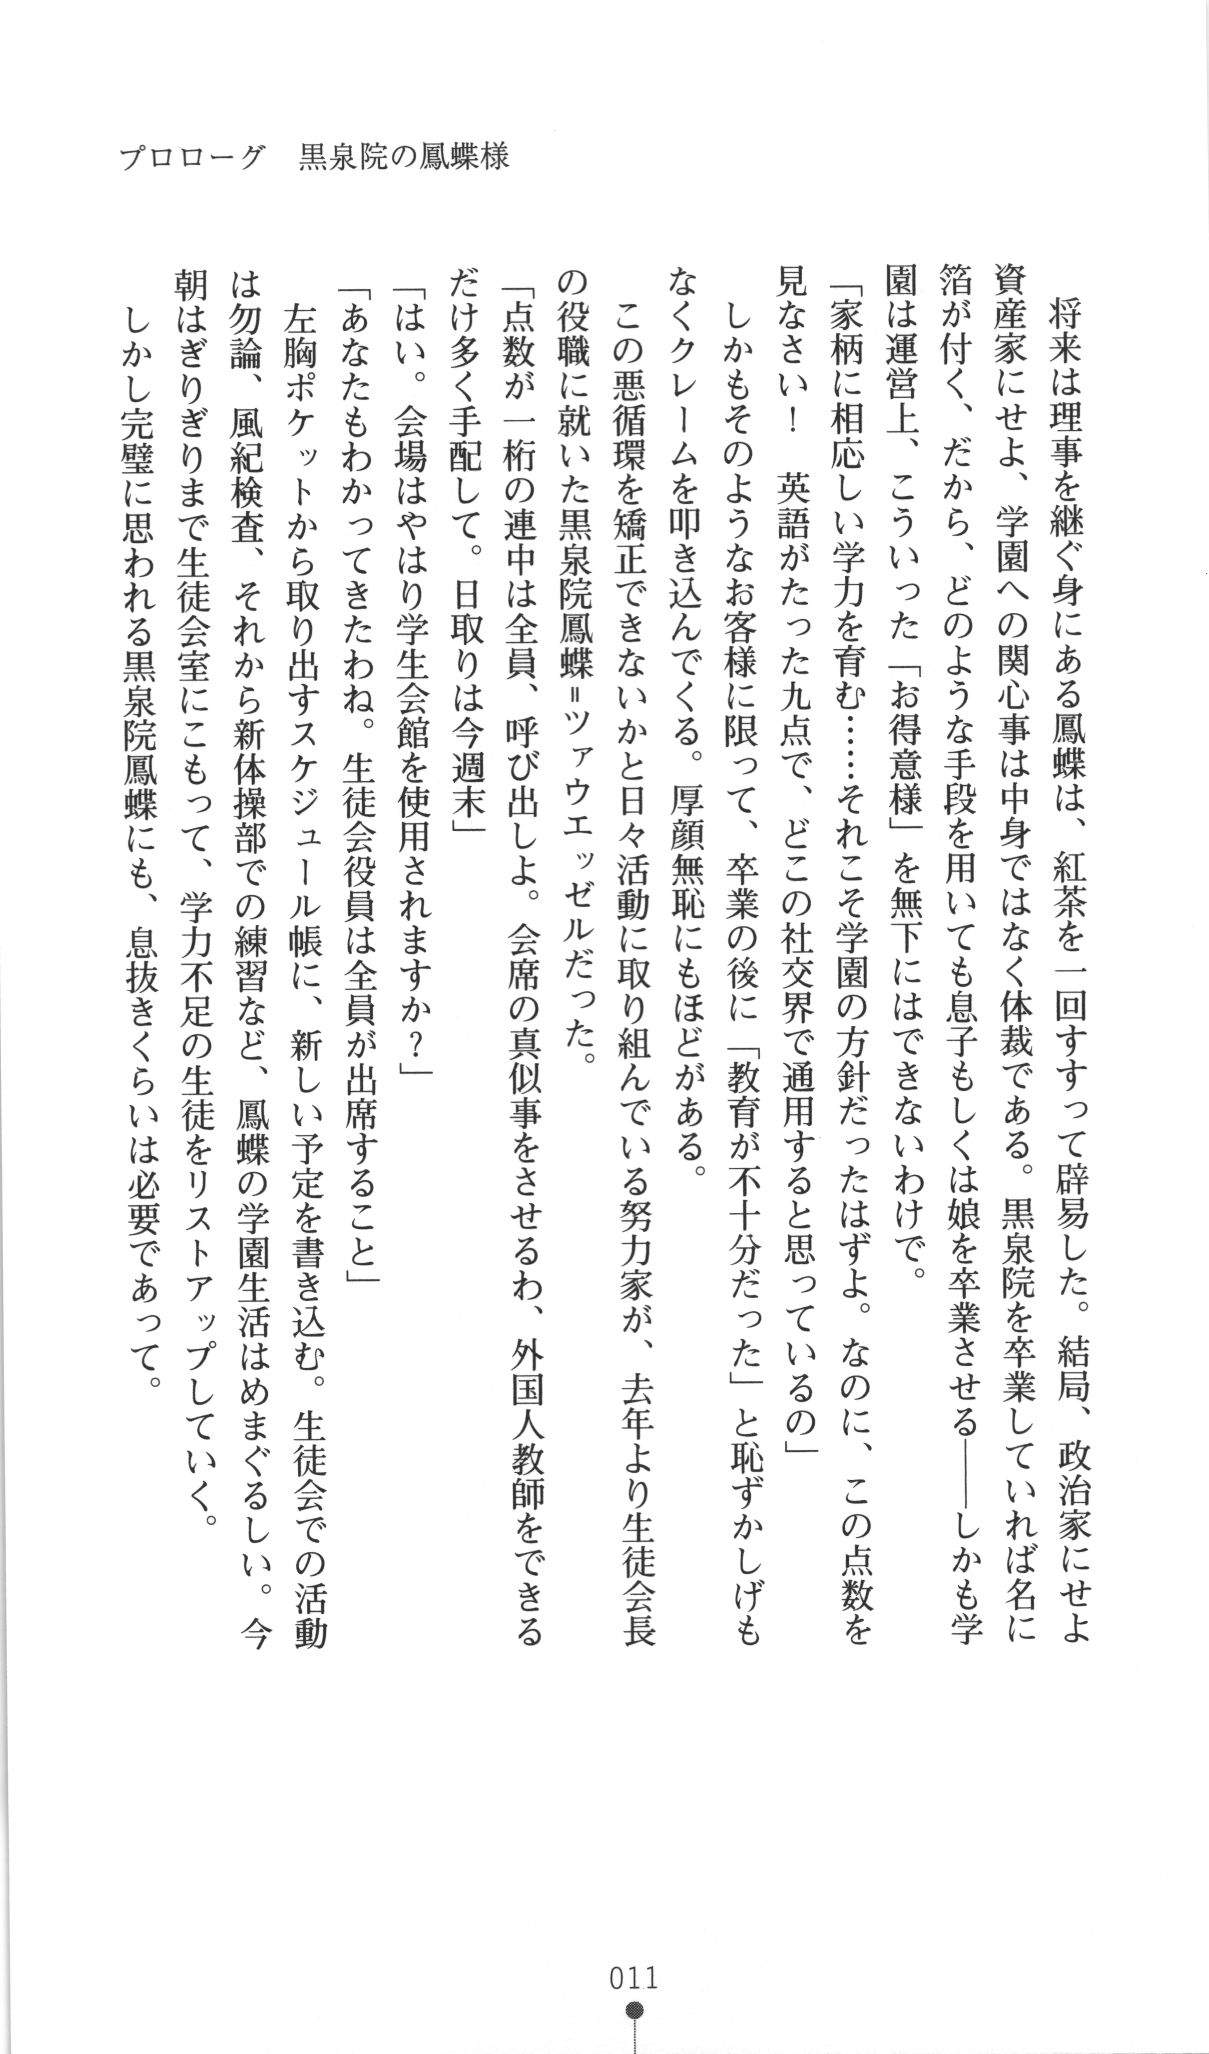 プロローグ　黒泉院の鳳蝶様
　将来は理事を継ぐ身にある鳳蝶は、紅茶を一回すすって辟易した。結局、政治家にせよ
資産家にせよ、学園への関心事は中身ではなく体裁である。黒泉院を卒業していれば名に
箔が付く、だから、どのような手段を用いても息子もしくは娘を卒業させる――しかも学
園は運営上、こういった「お得意様」を無下にはできないわけで。
「家柄に相応しい学力を育む……それこそ学園の方針だったはずよ。なのに、この点数を
見なさい！　英語がたった九点で、どこの社交界で通用すると思っているの」
　しかもそのようなお客様に限って、卒業の後に「教育が不十分だった」と恥ずかしげも
なくクレームを叩き込んでくる。厚顔無恥にもほどがある。
　この悪循環を矯正できないかと日々活動に取り組んでいる努力家が、去年より生徒会長
の役職に就いた黒泉院鳳蝶＝ツァウエッゼルだった。
「点数が一桁の連中は全員、呼び出しよ。会席の真似事をさせるわ、外国人教師をできる
だけ多く手配して。日取りは今週末」
「はい。会場はやはり学生会館を使用されますか？」
「あなたもわかってきたわね。生徒会役員は全員が出席すること」
　左胸ポケットから取り出すスケジュール帳に、新しい予定を書き込む。生徒会での活動
は勿論、風紀検査、それから新体操部での練習など、鳳蝶の学園生活はめまぐるしい。今
朝はぎりぎりまで生徒会室にこもって、学力不足の生徒をリストアップしていく。
　しかし完璧に思われる黒泉院鳳蝶にも、息抜きくらいは必要であって。
011